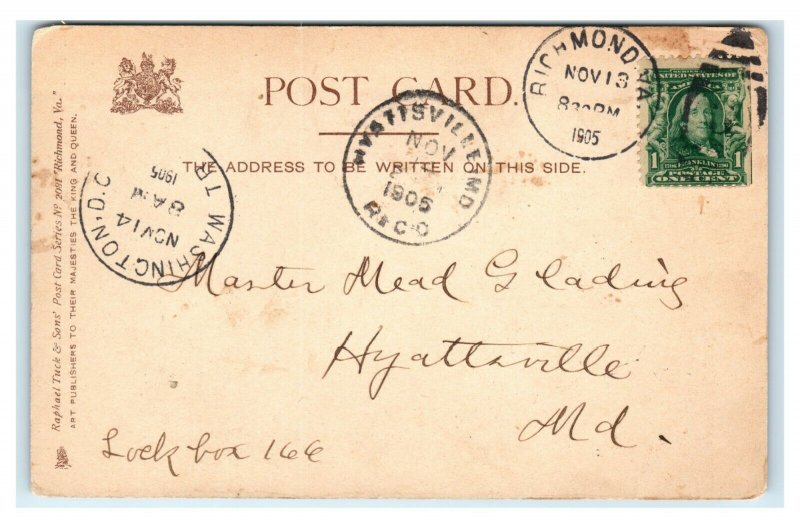 POST CARD.
THE ADDRESS TO BE WRITTEN ON THIS SIDE.
RICHMOND, VA
NOV 13
830PM
1905
UNITED STATES OF
AMERICA
1 FRANKLIN 1
POSTAGE
ONE CENT
HYATTSVILLE, MD
NOV
1905
REC'D
WASHINGTON, D.C
NOV 14
8 AM
1905
Master Mead Glading
Hyattsville
Md.
Lock box 166
Raphael Tuck & Sons' Post Card Series Nº 2091 "Richmond, Va."
ART PUBLISHERS TO THEIR MAJESTIES THE KING AND QUEEN.